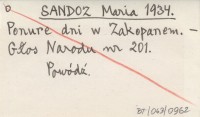 b SANDOZ Maria 1934.
Ponure dni w Zakopanem. –
Głos Narodu nr 201.
Powódź.
BT/063/0962